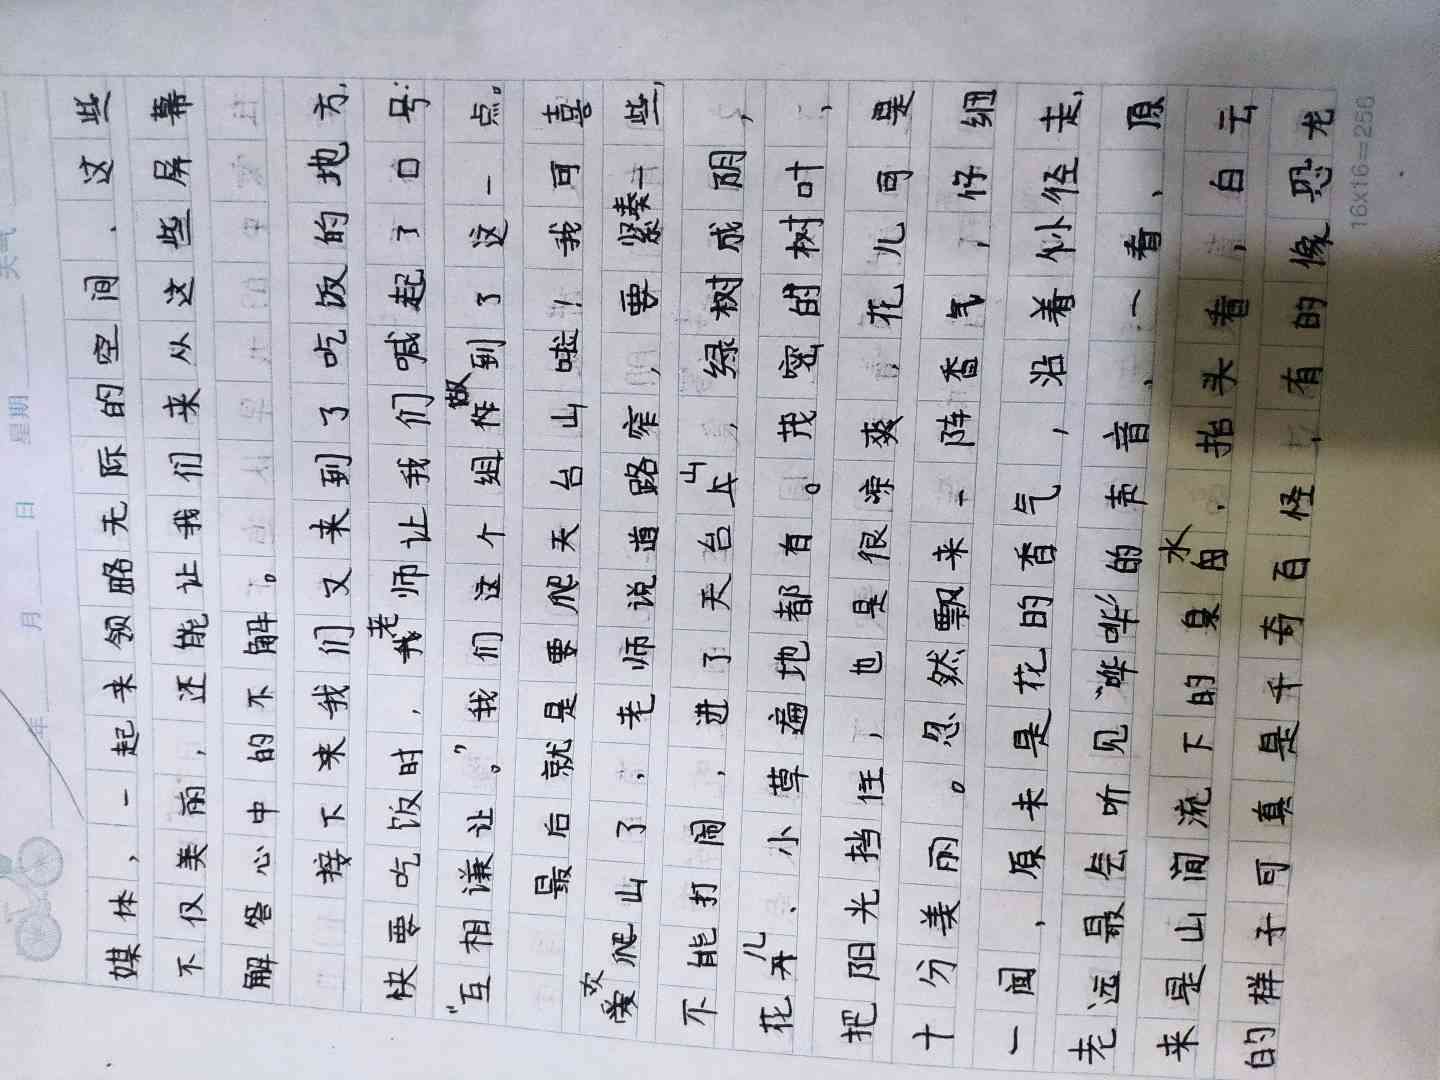 年 月 日 星期 天气
媒体，一起来领略无际的空间、这些
不仅美丽，还能让我们来从这些屏幕
解答心中的不解。
接下来我们又来到了吃饭的地方，
快要吃饭时，老师让我们喊起了口号：
“互相谦让。”我们这个组做到了这一点。
最后就是要爬天台山啦！我可喜
欢爬山了，老师说道路窄，要紧凑一些，
不能打闹，进了天台山，绿树成阴，
花儿、小草遍地都有。茂密的树叶，
把阳光挡住，也是很凉爽，花儿可是
十分美丽。忽然飘来一阵香气，仔细
一闻，原来是花的香气，沿着小径走，
老远最会听见“哗哗”的声音，一看，原
来是山间流下的泉水，抬头看，白云
的样子可真是千奇百怪，有的像恐龙
16x16=256